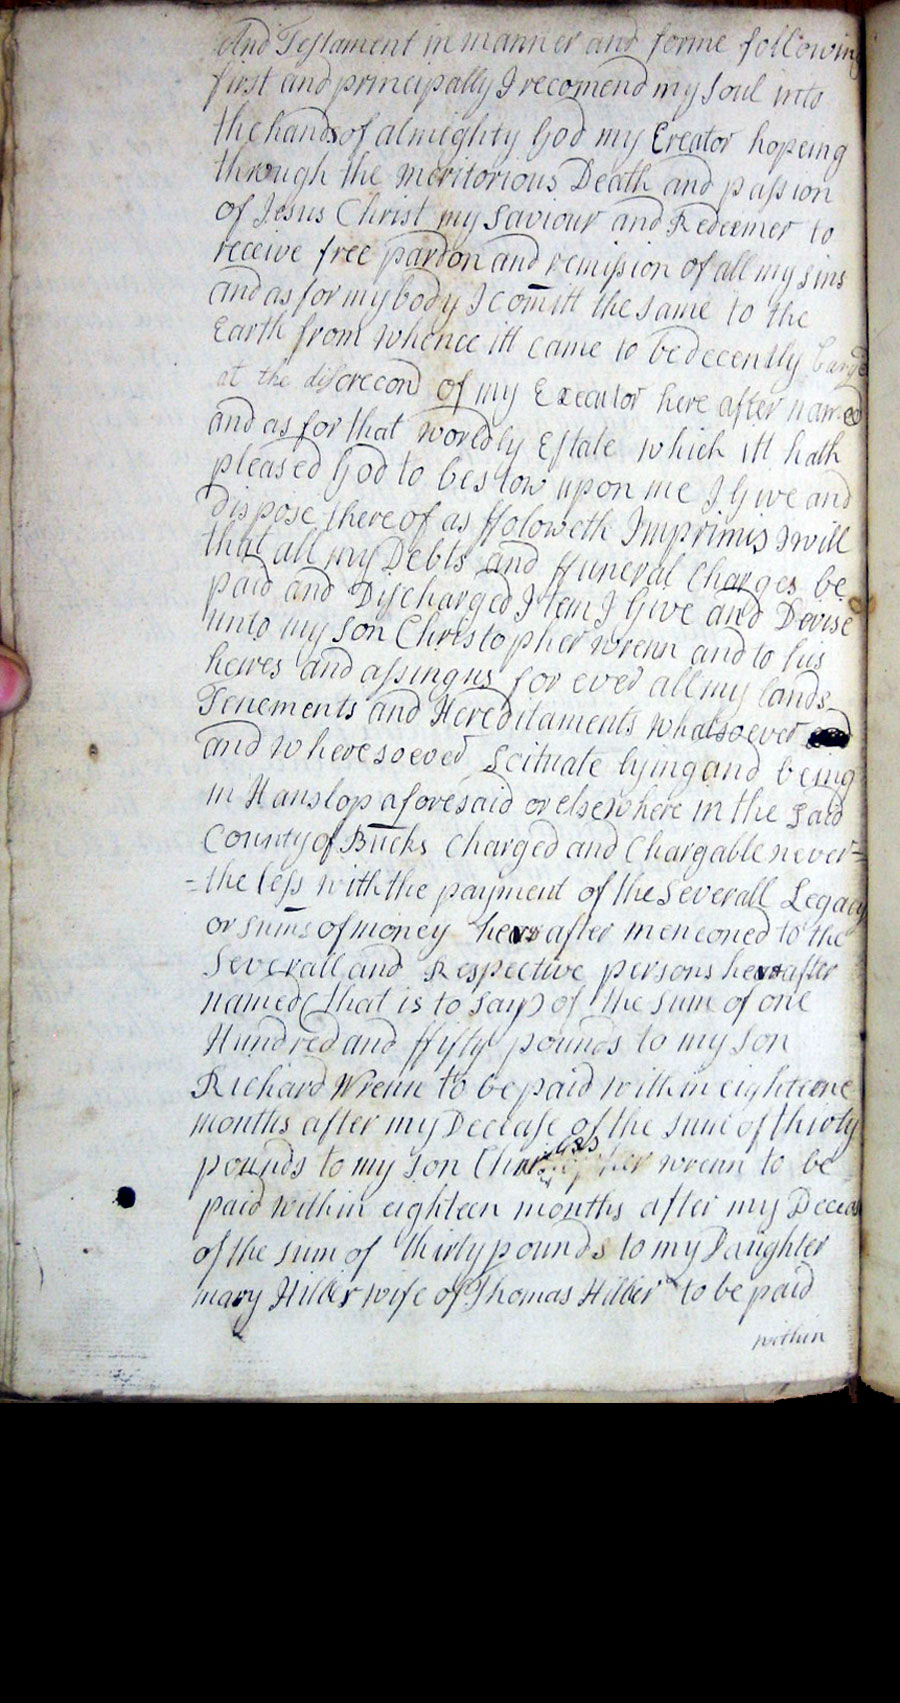 And Testament in manner and forme following
first and principally I recomend my soul into
the hands of almighty God my Creator hopeing
through the meritorious Death and passion
of Jesus Christ my Saviour and Redeemer to
receive free pardon and remission of all my sins
and as for my body I comitt the same to the
Earth from whence itt came to be decently
at the discrecon of my Executor here after named
and as for that worldly Estate which itt hath
pleased God to bestow upon me I Give and
dispose thereof as ffoloweth Imprimis I will
that all my Debts and ffuneral Charges be
paid and Discharged Item I Give and Devise
unto my son Christopher Wrenn and to his
heires and assingns for ever all my lands
Tenements and Hereditaments whatsoever
and wheresoever Scituate lying and being
in Hanslop aforesaid or elsewhere in the said
County of Bucks Charged and Chargable never=
=the less with the payment of the Severall Legacy
or sums of money here after menconed to the
Severall and Respective persons here after
named (that is to say) of the sum of one
Hundred and ffifty pounds to my son
Richard Wrenn to be paid within eighteene
months after my Decease of the sum of thirty
pounds to my son wrenn to be
paid within eighteen months after my Deceas
of the sum of thirty pounds to my Daughter
mary Hiller wife of Thomas Hiller to be paid
within